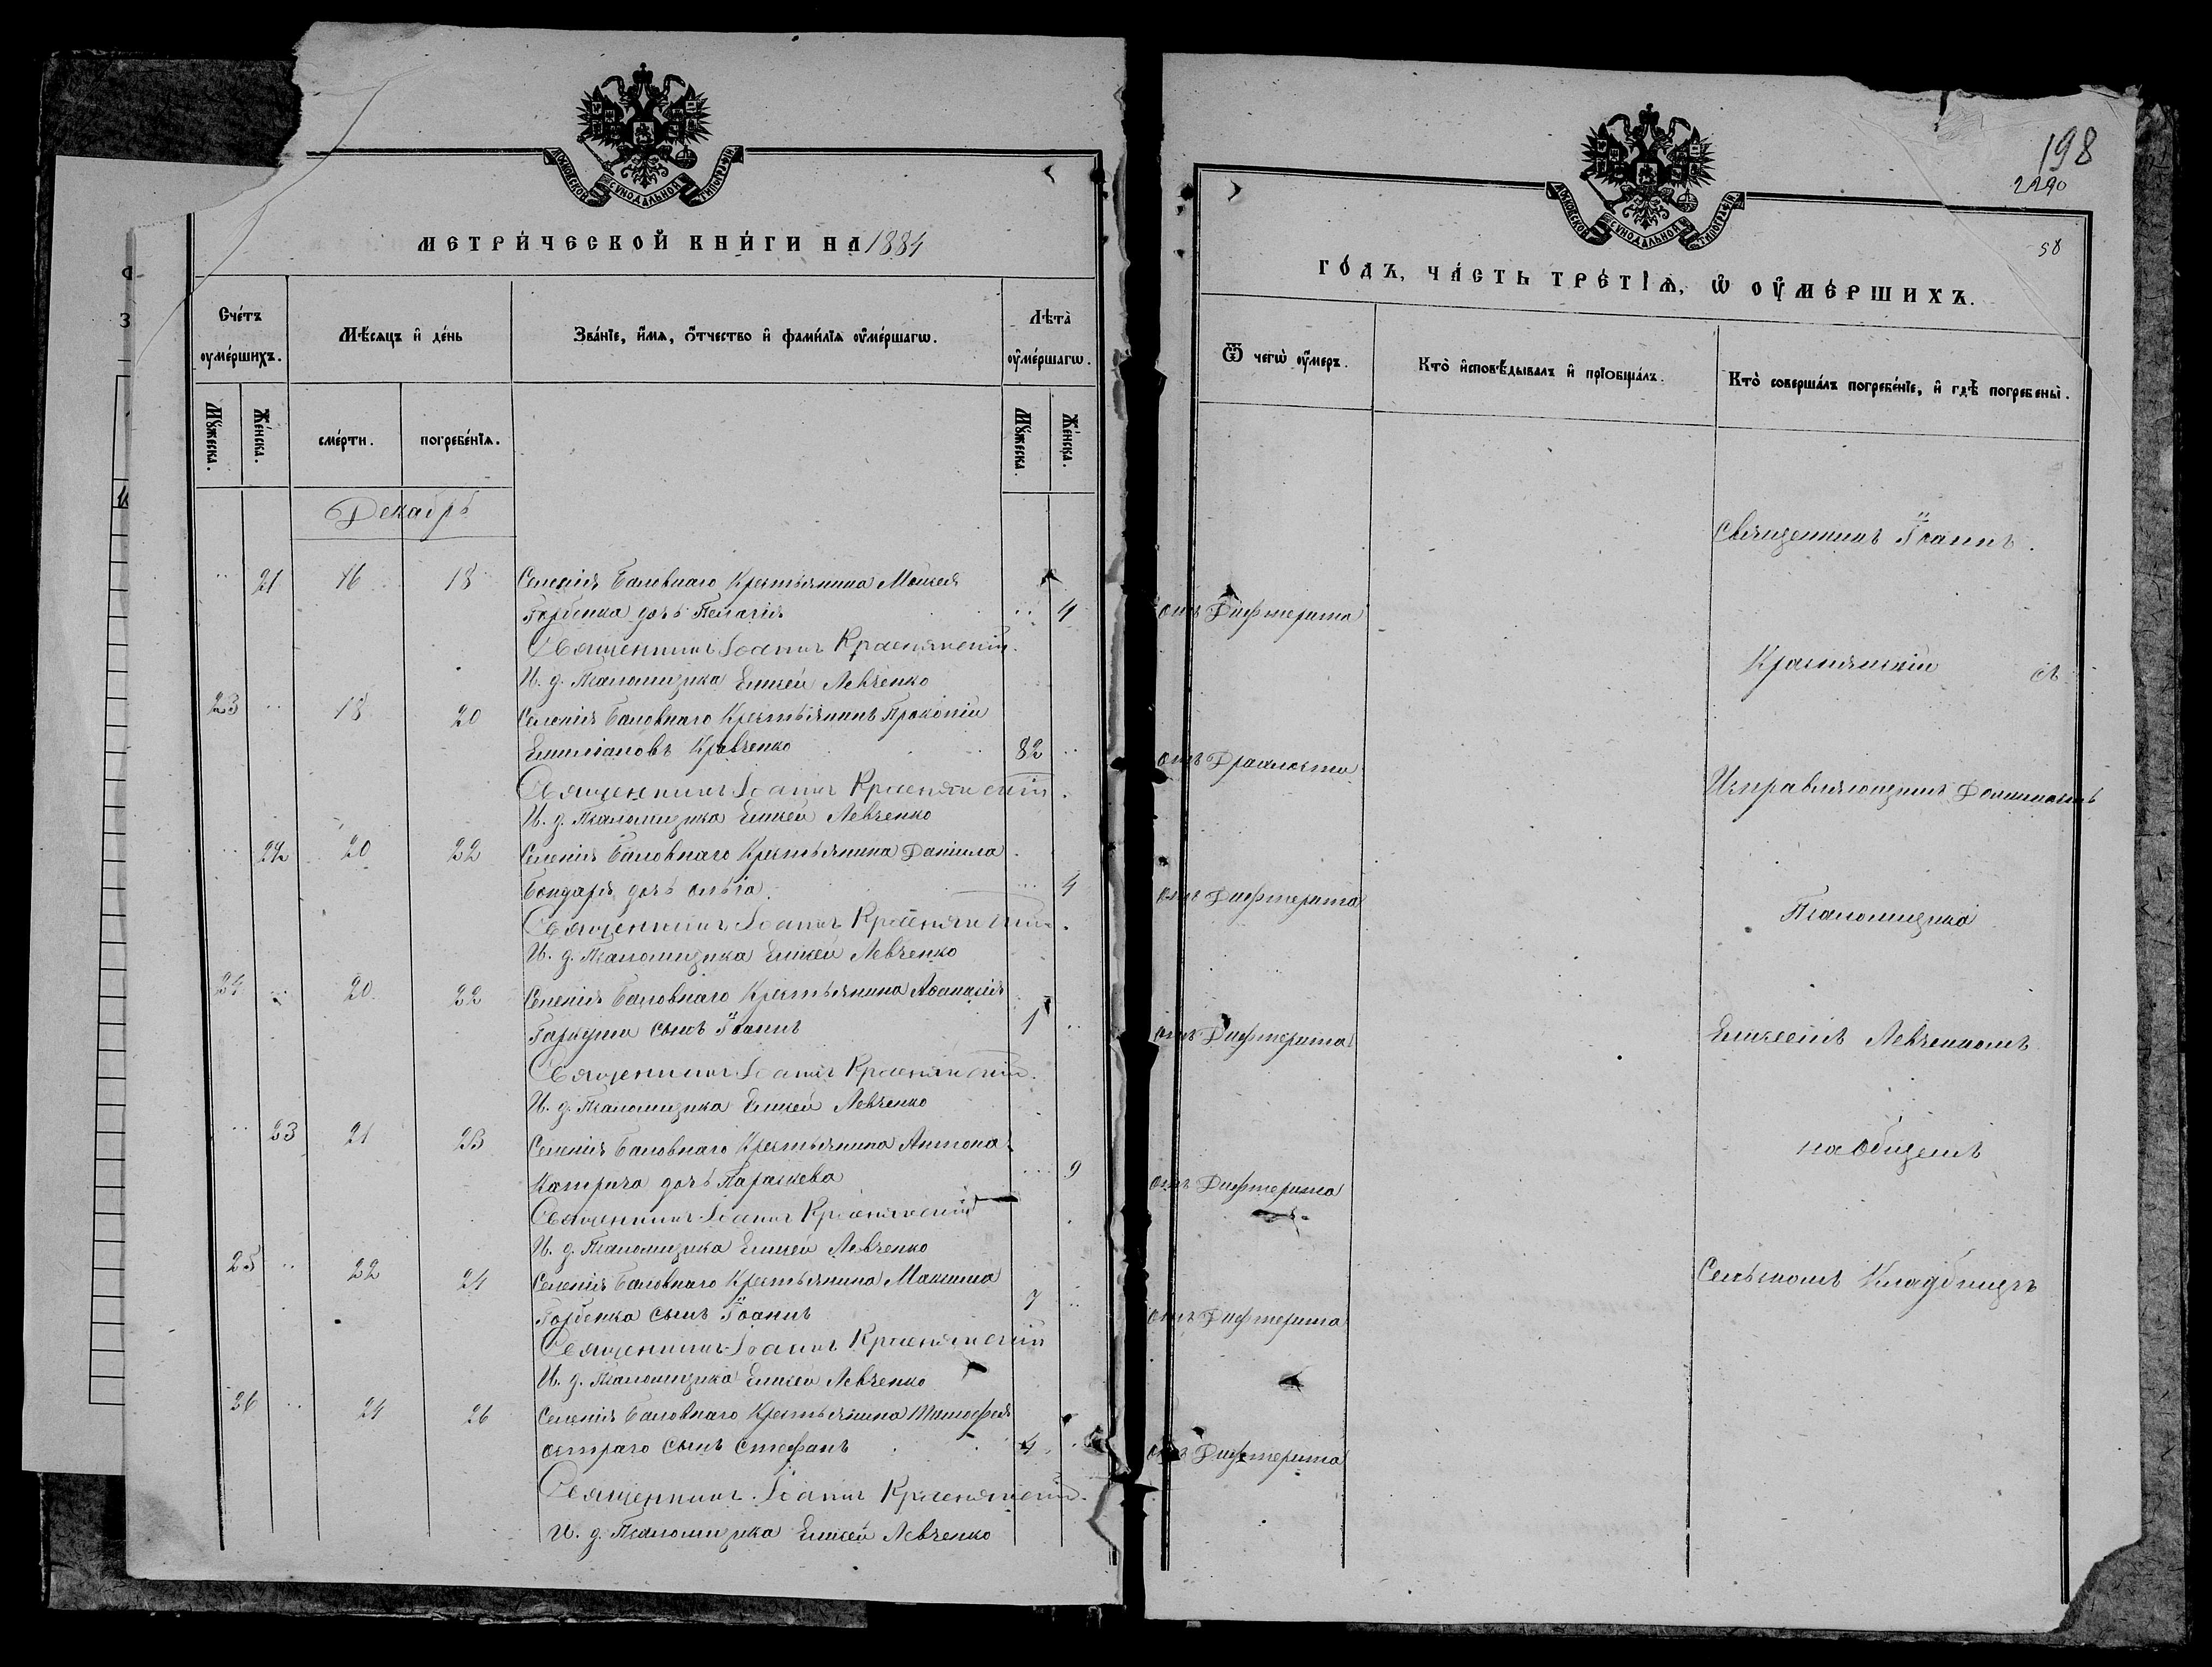 МОСКОВСКОЙ СѴНОДАЛЬНОЙ ТИПОГРАФІИ
МЕТРИ́ЧЕСКОЙ КНИ́ГИ НА 1884
Сче́тъ оуме́ршихъ.
Мѣ́сяцъ и҆ де́нь
Зва́нїе, и҆́мя, ѻ҆́тчество и҆ фами́лїя оу҆ме́ршагѡ.
Лѣта̀ оу҆ме́ршагѡ.
Мꙋ́жеска.
Же́нска.
сме́рти.
погребе́нїѧ.
Мꙋ́жеска.
Же́нска.
Декабрь
21 16 18 Селенія Баловнаго Крестьянина Моисея
Горбенка дочь Пелагія 4
Священникъ Іоаннъ Краснянскій.
И. д. Псаломщика Елисей Левченко
23 18 20 Селенія Баловнаго Крестьянинъ Прокопій
Емиліановъ Кравченко 82
Священникъ Іоаннъ Краснянскій.
И. д. Псаломщика Елисей Левченко
22 20 22 Селенія Баловнаго Крестьянина Даніила
Бондаря дочь Ольга 4
Священникъ Іоаннъ Краснянскій.
И. д. Псаломщика Елисей Левченко
24 20 22 Селенія Баловнаго Крестьянина Аѳанасія
Гаркуши сынъ Іоаннъ 1
Священникъ Іоаннъ Краснянскій.
И. д. Псаломщика Елисей Левченко
23 21 23 Селенія Баловнаго Крестьянина Антона
Катрича дочь Параскева 9
Священникъ Іоаннъ Краснянскій
И. д. Псаломщика Елисей Левченко
25 22 24 Селенія Баловнаго Крестьянина Максима
Горбенка сынъ Іоаннъ 7
Священникъ Іоаннъ Краснянскій
И. д. Псаломщика Елисей Левченко
26 24 26 Селенія Баловнаго Крестьянина Тимофея
Остраго сынъ Стефанъ 4
Священникъ Іоаннъ Краснянскій.
И. д. Псаломщика Елисей Левченко
198
2290
58
МОСКОВСКОЙ СѴНОДАЛЬНОЙ ТИПОГРАФІИ
ГО́ДЪ, ЧА́СТЬ ТРЕ́ТІѦ, Ѡ҆ ОУ҆МЕ́РШИХЪ.
Ѿ чегѡ̀ оу҆́меръ.
Кто̀ и҆сповѣ́дывалъ и҆ прїѻбща́лъ.
Кто̀ соверша́лъ погребе́нїе, и҆ гдѣ̀ погребены̀.
Священникъ Іоаннъ
отъ Дифтерита
Краснянскій съ
отъ Дряхлости
Исправляющимъ Должность
отъ Дифтерита
Псаломщика
отъ Дифтерита
Елисеемъ Левченкомъ
на Общемъ
отъ Дифтерита
Сельскомъ Кладбищѣ
отъ Дифтерита
отъ Дифтерита